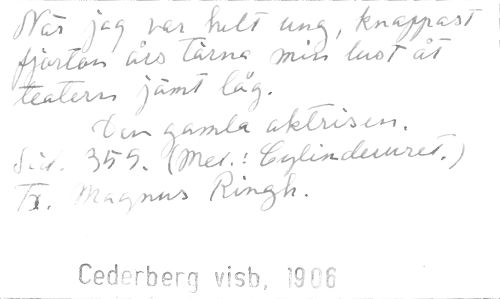 När jag var helt ung, knappast
fjorton års tärna min lust åt
teatern jämt låg.
Den gamla aktrisen.
Sid. 359. (Mel.: Cylinderuret.)
Tx. Magnus Ringh.
Cederberg visb, 1906